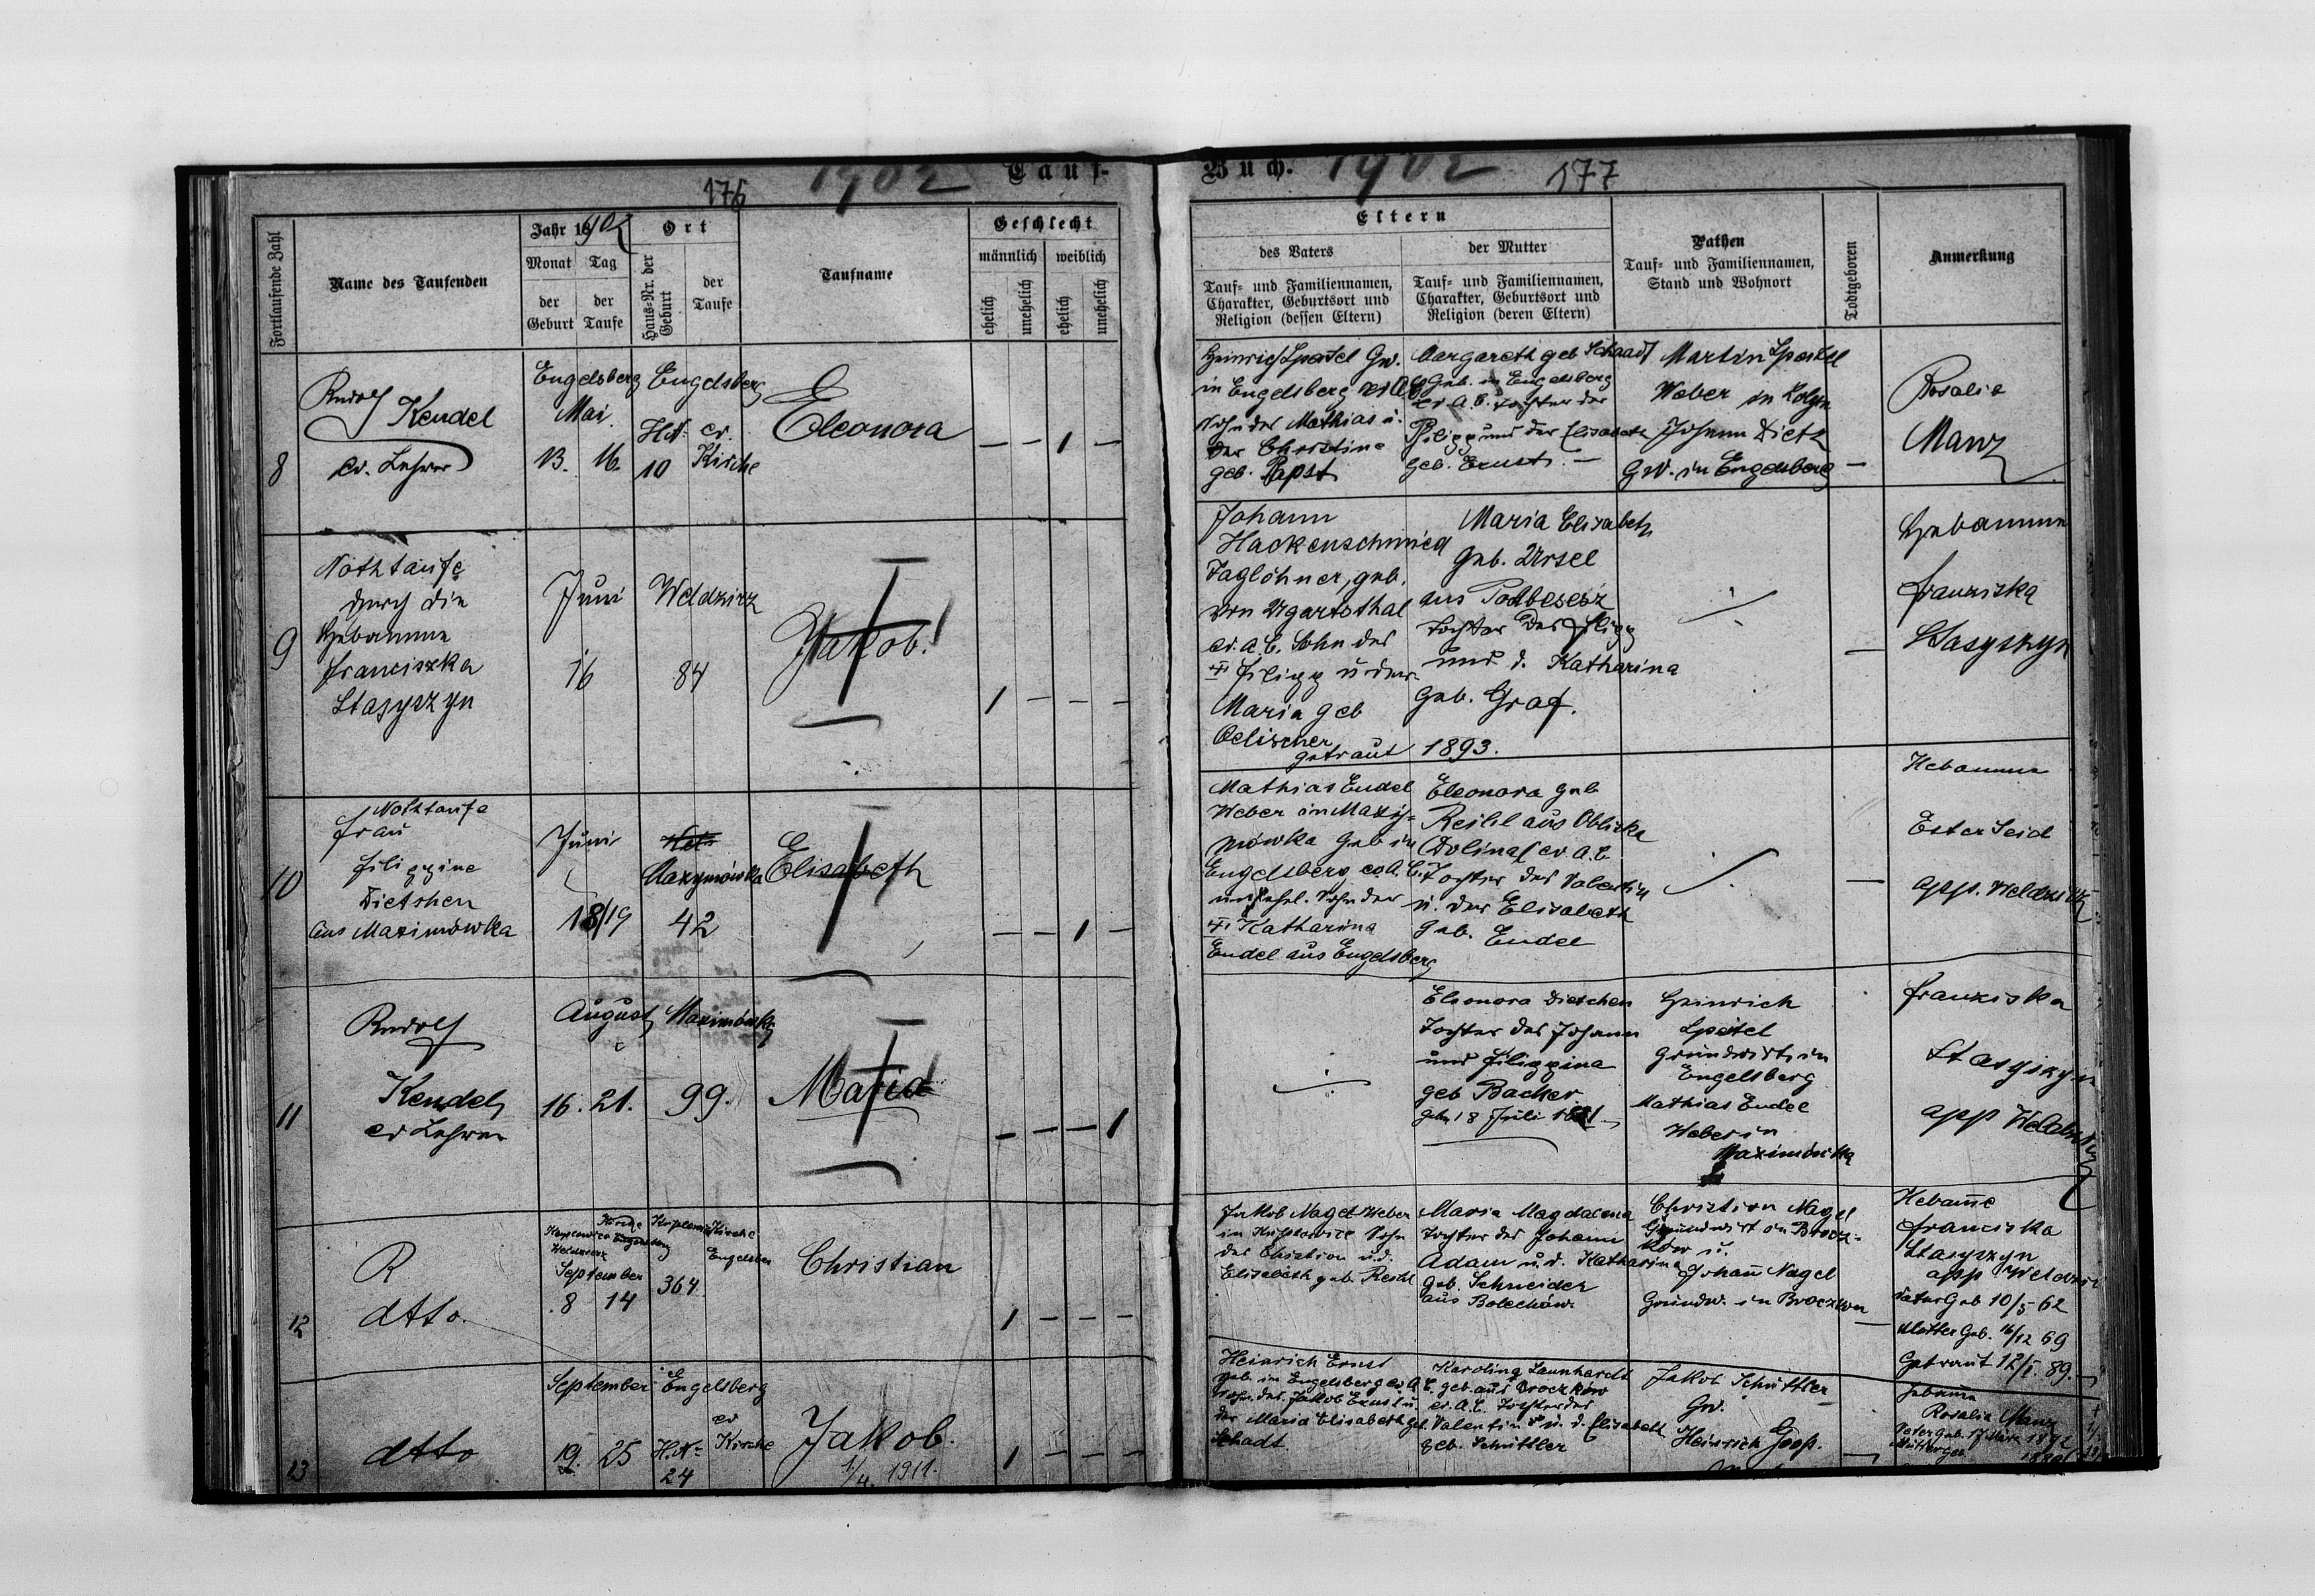 176 1902 Tauf-
Buch. 1902 177
Fortlaufende Zahl
Name des Taufenden
Jahr 1902
Monat Tag
der der
Geburt Taufe
Ort
Haus-Nr. der Geburt
der
Taufe
Taufname
Geschlecht
männlich weiblich
ehelich unehelich ehelich unehelich
Eltern
des Vaters
Tauf- und Familiennamen,
Charakter, Geburtsort und
Religion (dessen Eltern)
der Mutter
Tauf- und Familiennamen,
Charakter, Geburtsort und
Religion (deren Eltern)
Pathen
Tauf- und Familiennamen,
Stand und Wohnort
Todtgeboren
Anmerkung
8
Rudolf
Kendel
ev. Lehrer
Engelsberg
Mai
13. 16.
Engelsberg
HN. ev.
10 Kirche
Eleonora
— — 1 —
Heinrich Spatel Gw.
in Engelsberg
Sohn des Mathias u.
der Christine
geb. Papst
Margareth geb Schaad
Geb. in Engelsberg
ev A. B. Tochter des
Philipp und der Elisabeth
geb. Ernst. —
Martin Spatel
Weber in
Johann Dietz
Gw. in Engelsberg —
Rosalia
Manz
9
Nothtaufe
durch die
Hebamme
Franciszka
Stasyszyn
Juni
16
Weldzirz
84
Jakob!
1 — — —
Johann
Hackenschmied
Taglöhner, geb.
von Ugartsthal
ev. A. B. Sohn des
Filipp u der
Maria geb
Oelischer
getraut 1893.
Maria Elisabeth
Geb. Ursel
aus
Tochter des Filipp
und d. Katharina
Geb. Graf.
—
Hebamme
Franziska
Stasyszyn
10
Nothtaufe
Frau
Filippine
Dietshen
aus Maximówka
Juni
18/19
Maxymówka
42
Elisabeth
— — 1 —
Mathias Endel
Weber in Maxy-
mówka Geb in
Engelsberg ev A. B.
unehel. Sohn der
Katharina
Endel aus Engelsberg
Eleonora geb
Reihl aus Obliska
(Dolina) ev. A. B.
Tochter des Valentin
u. der Elisabeth
Geb. Endel
—
Hebamme
Ester Seid
app. Weldzirz
11
Rudolf
Kendel
ev Lehrer
August
16. 21.
Maximówka
99.
Maria
— — — 1
Eleonora Dietschen
Tochter des Johann
und Filippina
geb Bacher
geb. 18 Juli 1881
Heinrich
Spatel
Grundwirt in
Engelsberg
Mathias Endel
Weber in
Maximówka
Franziska
Stasyszyn
app Weldzirz
12
R
dtto.
Weldzirz
September
8 14
Kirche
Engelsberg
364
Christian
1 — — —
Jakob Nagel Weber
in Sohn
des Christian u. d.
Elisabeth geb. Reihl
Maria Magdalena
Tochter des Johann
Adam u. d. Katharina
geb. Schneider
aus Bolechów
Christian Nagel
Grundwirt in Brocz-
ków u.
Johan̄ Nagel
Grundw. in Broczkow
—
Hebam̄e
Franciska
Stasyszyn
app Weldzirz
Vater Geb 10/5 62
Mutter Geb. 16/12 69
Getraut 12/I. 89.
13
dtto
September
19. 25
Engelsberg
ev
HN. Kirche
24
Jakob.
1/4. 1911.
1 — — —
Heinrich Ernst
geb. in Engelsberg ev. A. B.
Sohn des Jakob Ernst u.
der Maria Elisabeth geb.
Schadt
Karolina Launhardt
geb. aus Broczków
ev. A. B. Tochter des
Valentin u. d. Elisabeth
geb. Schüttler
Jakob Schüttler
Gw.
Heinrich Gooß.
—
Hebam̄e
Rosalia Manz
Vater geb. 17 März 1872
Mutter geb.